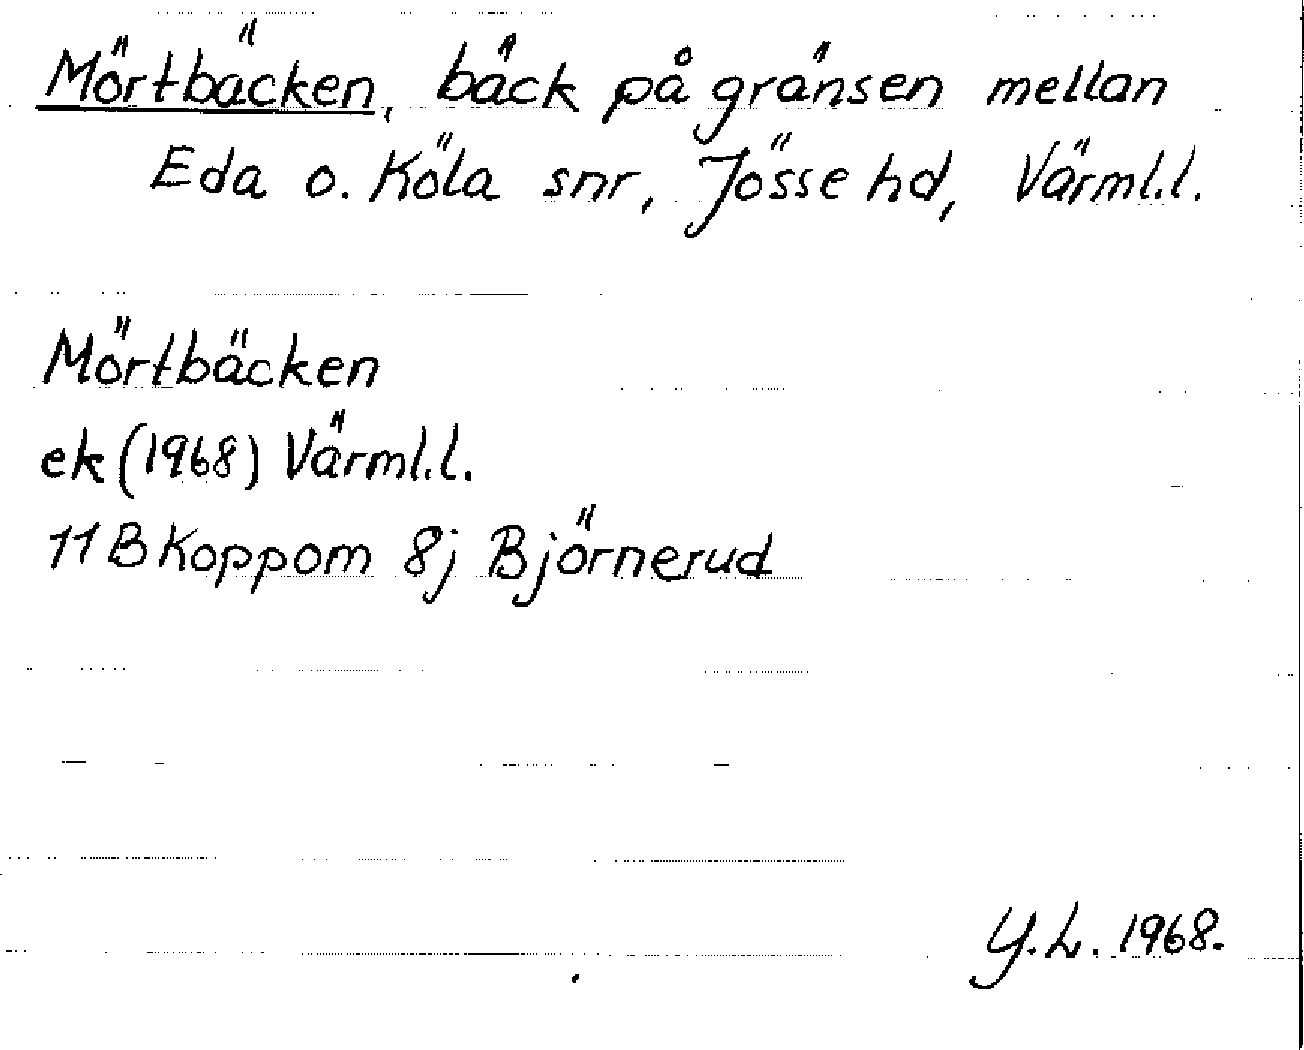 Mörtbäcken, bäck på gränsen mellan
Eda o. Köla snr, Jösse hd, Värml.l.
Mörtbäcken
ek (1968) Värml.l.
11B Koppom 8j Björnerud
Y.L. 1968.